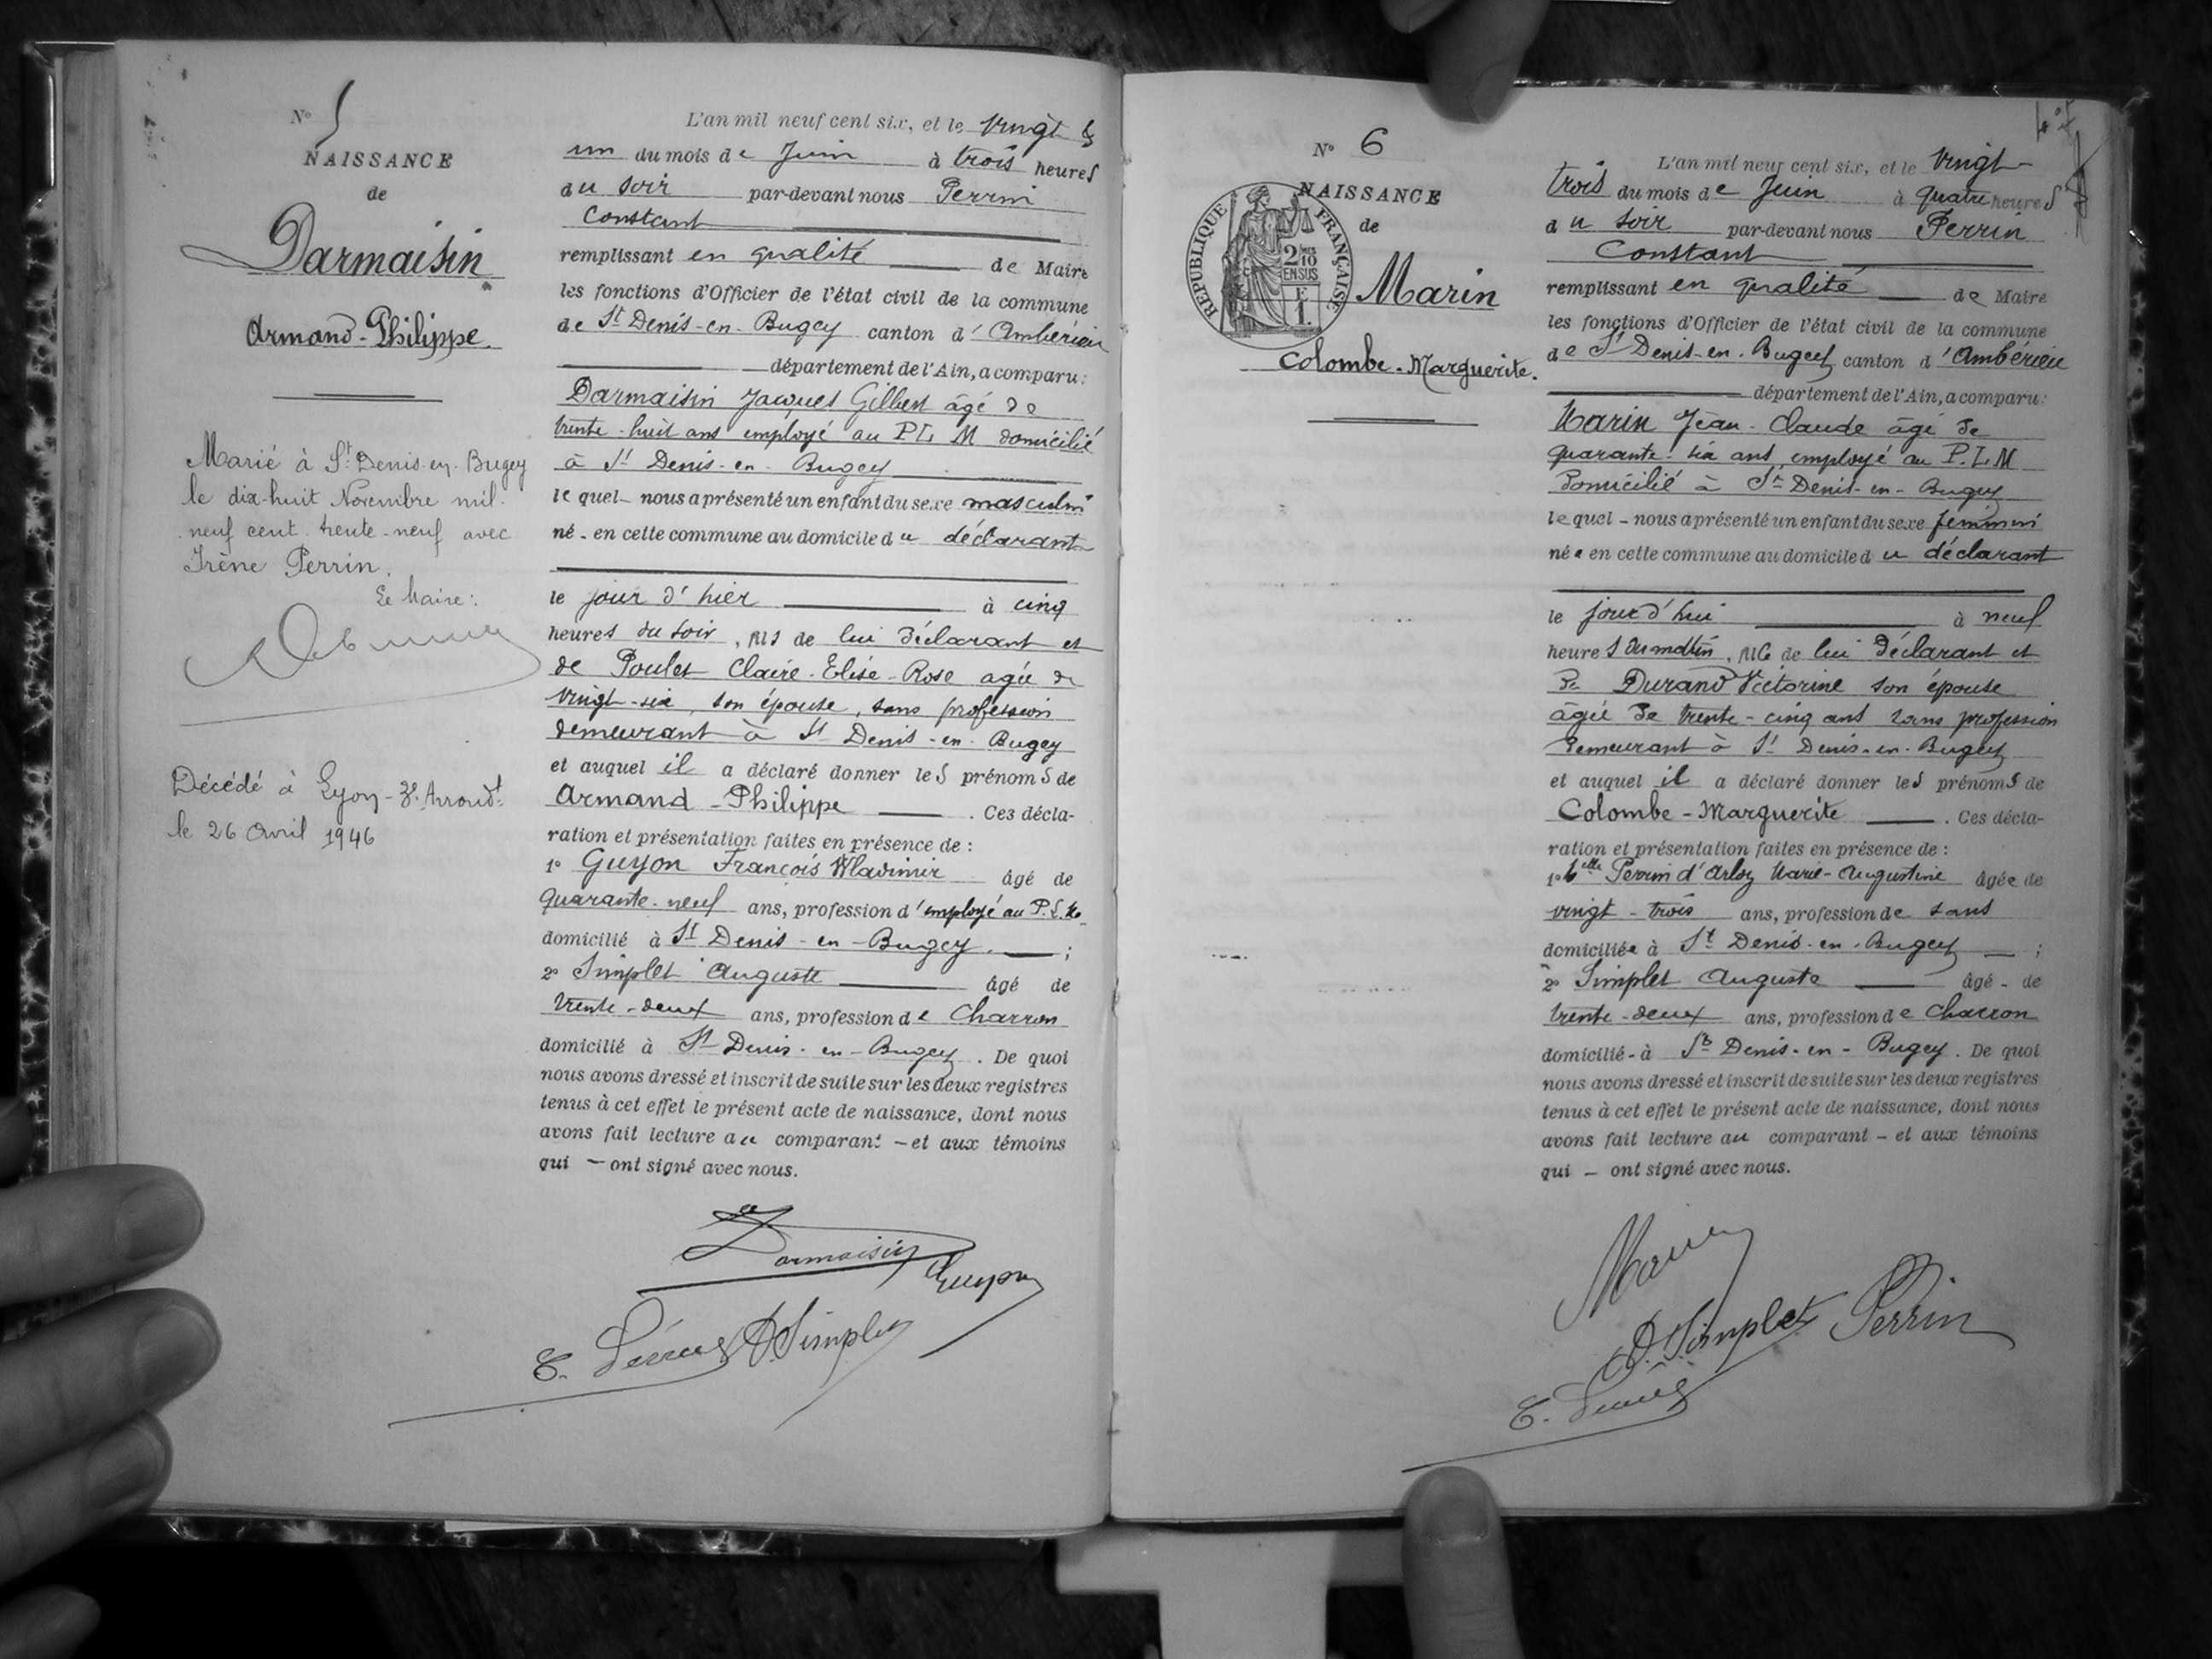 N° 5
NAISSANCE
de
Darmaisin
Armand-Philippe.
Marié à St Denis-en-Bugey
le dix-huit Novembre mil-
neuf cent trente-neuf avec
Irène Perrin.
Le Maire:
Décédé à Lyon-3e Arrondt
le 26 Avril 1946
L'an mil neuf cent six, et le vingt &
un du mois de Juin à trois heures
du soir par-devant nous Perrin
Constant
remplissant en qualité de Maire
les fonctions d'Officier de l'état civil de la commune
de St Denis-en-Bugey canton d'Ambérieu
département de l'Ain, a comparu:
Darmaisin Jacques Gilbert âgé de
trente-huit ans employé au PLM domicilié
à St Denis-en-Bugey
lequel nous a présenté un enfant du sexe masculin
né en cette commune au domicile du déclarant
le jour d'hier à cinq
heures du soir, fils de lui déclarant et
de Poulet Claire-Elise-Rose agée de
vingt-six, son épouse, sans profession
demeurant à St Denis-en-Bugey
et auquel il a déclaré donner les prénoms de
Armand-Philippe. Ces décla-
ration et présentation faites en présence de:
1° Guyon François Wladimir âgé de
quarante-neuf ans, profession d'employé au P.L.M.
domicilié à St Denis-en-Bugey.;
2° Simplet Auguste âgé de
trente-deux ans, profession de Charron
domicilié à St Denis-en-Bugey. De quoi
nous avons dressé et inscrit de suite sur les deux registres
tenus à cet effet le présent acte de naissance, dont nous
avons fait lecture au comparant - et aux témoins
qui - ont signé avec nous.
Darmaisin
Guyon
A Simplet
N° 6
NAISSANCE
de
RÉPUBLIQUE FRANÇAISE
2/10
EN SUS
F
1.
Marin
Colombe-Marguerite.
L'an mil neuf cent six, et le vingt-
trois du mois de Juin à quatre heures
du soir par-devant nous Perrin
Constant
remplissant en qualité de Maire
les fonctions d'Officier de l'état civil de la commune
de St Denis-en-Bugey canton d'Ambérieu
département de l'Ain, a comparu:
Marin Jean-Claude âgé de
quarante-six ans employé au P.L.M
domicilié à St Denis-en-Bugey
lequel - nous a présenté un enfant du sexe féminin
née en cette commune au domicile du déclarant
le jour d'hui à neuf
heures du matin, fille de lui déclarant et
de Durand Victorine son épouse
âgée de trente-cinq ans sans profession
demeurant à St Denis-en-Bugey
et auquel il a déclaré donner les prénoms de
Colombe-Marguerite. Ces décla-
ration et présentation faites en présence de:
1° Melle Perrin d'Arloz Marie-Augustine âgée de
vingt-trois ans, profession de sans
domiciliée à St Denis-en-Bugey;
2° Simplet Auguste âgé - de
trente-deux ans, profession de Charron
domicilié - à St Denis-en-Bugey. De quoi
nous avons dressé et inscrit de suite sur les deux registres
tenus à cet effet le présent acte de naissance, dont nous
avons fait lecture au comparant - et aux témoins
qui - ont signé avec nous.
Marin
A. Simplet Perrin